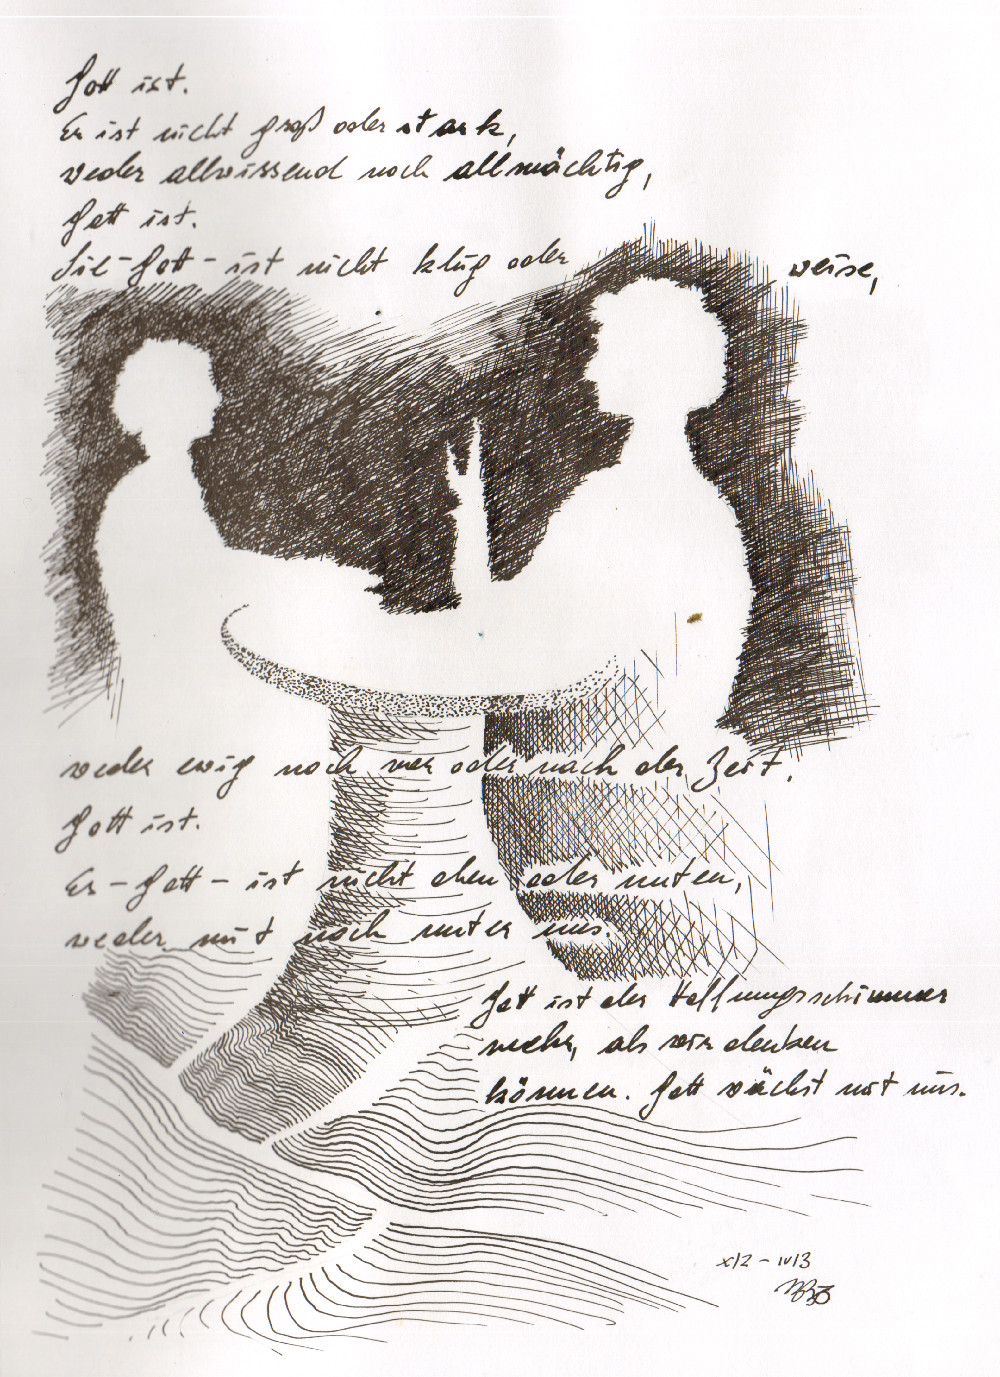 Gott ist.
Er ist nicht groß oder stark,
weder allwissend noch allmächtig,
Gott ist.
Sie - Gott - ist nicht klug oder weise,
weder ewig noch vor oder nach der Zeit.
Gott ist.
Er - Gott - ist nicht oben oder unten,
weder mit noch unter uns.
Gott ist der Hoffnungsschimmer
mehr, als wir denken
können. Gott wächst mit uns.
X/2 - IV/3